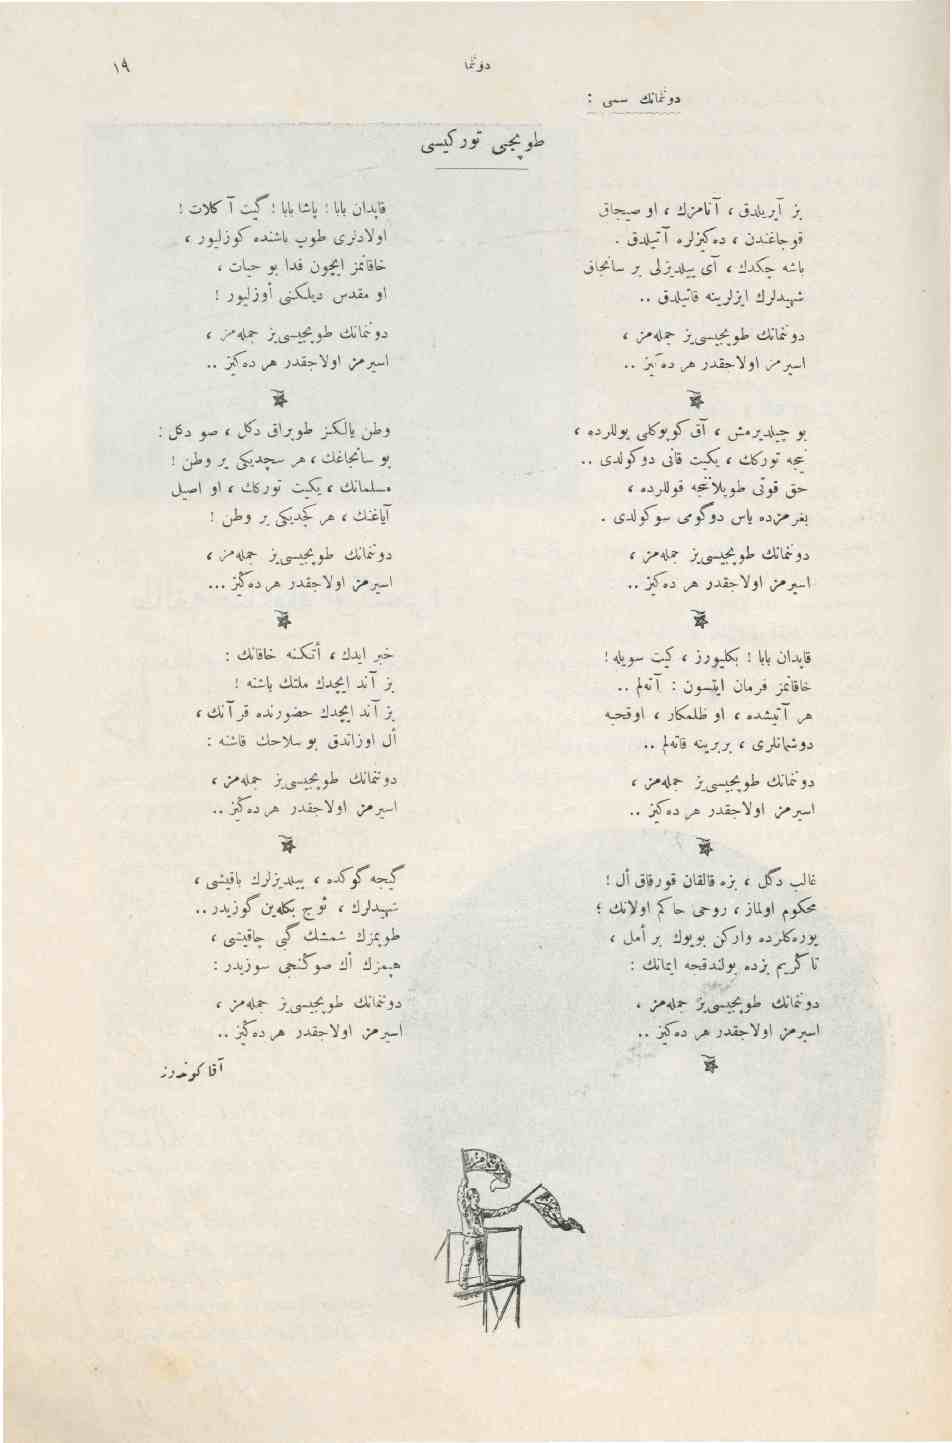 دوننما
١٩
دوننمانك سسی :
طوپجی توركیسی
بز آیریلدق ، آنامزك ، او صیجاق
قوجاغندن ، ده‌كیزلره آتیلدق .
باشه چكدك ، آی ییلدیزلی بر سانجاق
شهیدلرك ایزلرینه قاتیلدق ..
دوننمانك طوپجیسی‌یز جمله‌مز ،
اسیرمز اولاجقدر هر ده‌كیز ..
بو چیلدیرمش ، آق كوپوكلی یوللرده ،
نیجه توركك ، یكیت قانی دوكولدی ..
حق قوتی طوپلاننجه قوللرده ،
بغرمزده یاس دوگومی سوكولدی .
دوننمانك طوپجیسی‌یز جمله‌مز ،
اسیرمز اولاجقدر هر ده‌كیز ..
قاپدان بابا ! بكلیورز ، كیت سویله !
خاقانمز فرمان ایتسون : آته‌لم ..
هر آتیشده ، او ظلمكار ، اوقحبه
دوشمانلری ، بربرینه قاته‌لم ..
دوننمانك طوپجیسی‌یز جمله‌مز ،
اسیرمز اولاجقدر هر ده‌كیز ..
غالب دگل ، بزه قالقان قورقاق أل !
محكوم اولماز ، روحی حاكم اولانك ؛
یوره‌كلرده واركن بویوك بر أمل ،
تاكریم بزده بولندقجه ایمانك :
دوننمانك طوپجیسی‌یز جمله‌مز ،
اسیرمز اولاجقدر هر ده‌كیز ..
قاپدان بابا ! پاشا بابا ! گیت آكلات !
اولادلری طوپ باشنده كوزلیور ،
خاقانمز ایچون فدا بو حیات ،
او مقدس دیلكنی أوزلیور !
دوننمانك طوپجیسی‌یز جمله‌مز ،
اسیرمز اولاجقدر هر ده‌كیز ..
وطن یالكز طوپراق دكل ، صو دكل :
بو سانجاغك ، هر سچدیكی یر وطن !
مسلمانك ، یكیت توركك ، او اصیل
آیاغنك ، هر كچدیكی یر وطن !
دوننمانك طوپجیسی‌یز جمله‌مز ،
اسیرمز اولاجقدر هر ده‌كیز ...
خبر ایدك ، أتكنه خاقانك :
بز آند ایچدك ملتك باشنه !
بز آند ایچدك حضورنده قرآنك ،
أل اوزاتدق بو سلاحك قاشنه :
دوننمانك طوپجیسی‌یز جمله‌مز ،
اسیرمز اولاجقدر هر ده‌كیز ..
گیجه گوكده ، ییلدیزلرك باقیشی ،
شهیدلرك ، ئوج بكله‌ین گوزیدر ..
طوپمزك شمشك گبی چاقیشی ،
هپمزك أك صوكنجی سوزیدر :
دوننمانك طوپجیسی‌یز جمله‌مز ،
اسیرمز اولاجقدر هر ده‌كیز ..
آقا كوندوز